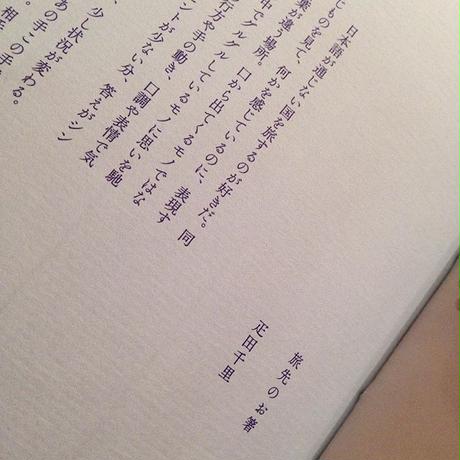 旅先のお箸
疋田千里
日本語が通じない国を旅するのが好きだ。同
じものを見て、何かを感じているのに、表現す
葉が違う場所。口から出てくるモノではな
中でグルグルしているモノに思いを馳
行方や手の動き、口調や表情で気
ントが少ない分、答えがシン
、少し状況が変わる。
あの手この手
。相手